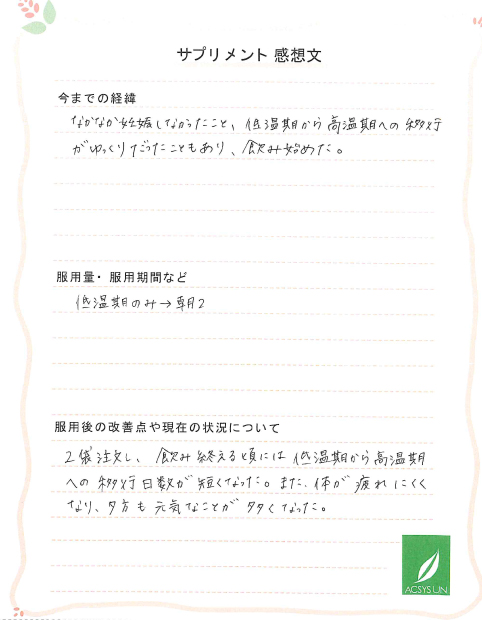 サプリメント 感想文
今までの経緯
なかなか妊娠しなかったこと、低温期から高温期への移行
がゆっくりだったこともあり、飲み始めた。
服用量・服用期間など
低温期のみ→朝2
服用後の改善点や現在の状況について
2袋注文し、飲み終える頃には低温期から高温期
への移行日数が短くなった。また、体が疲れにくく
なり、夕方も元気なことが多くなった。
ACSYS LIN